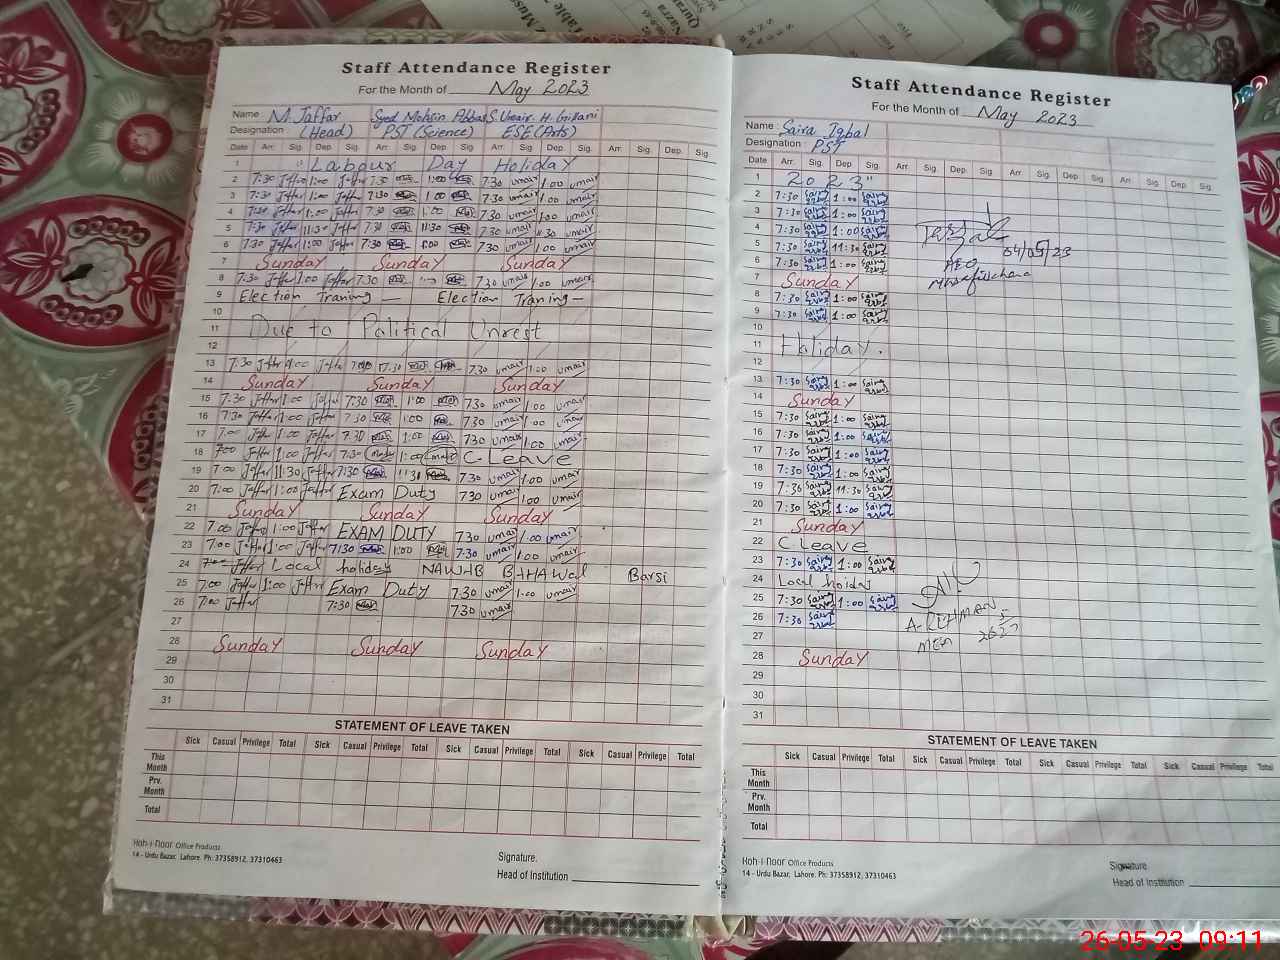 Staff Attendance Register
For the Month of May 2023
Name : M. Jaffar Syed Mohsin Abbas S. Umair. H. Gillani
Designation : (Head) PST (Science) ESE (Arts)
Date Arr. Sig. Dep. Sig. Arr. Sig. Dep. Sig. Arr. Sig. Dep. Sig. Arr. Sig. Dep. Sig.
1 Labour Day Holiday
2 7:30 Jaffar 1:00 Jaffar 7:30 1:00 7:30 umair 1:00 umair
3 7:30 Jaffar 1:00 Jaffar 7:30 1:00 7:30 umair 1:00 umair
4 7:30 Jaffar 1:00 Jaffar 7:30 1:00 7:30 umair 1:00 umair
5 7:30 Jaffar 11:30 Jaffar 7:30 11:30 7:30 umair 11:30 umair
6 7:30 Jaffar 1:00 Jaffar 7:30 1:00 7:30 umair 1:00 umair
7 Sunday Sunday Sunday
8 7:30 Jaffar 1:00 Jaffar 7:30 7:30 umair 1:00 umair
9 Election Traning — Election Traning —
10
11 Due to Political Unrest
12
13 7:30 Jaffar 1:00 Jaffar 7:30 umair 1:00 umair
14 Sunday Sunday Sunday
15 7:30 Jaffar 1:00 Jaffar 7:30 1:00 7:30 umair 1:00 umair
16 7:30 Jaffar 1:00 Jaffar 7:30 1:00 7:30 umair 1:00 umair
17 7:00 Jaffar 1:00 Jaffar 7:30 1:00 7:30 umair 1:00 umair
18 7:00 Jaffar 1:00 Jaffar 7:30 1:00 C-Leave
19 7:00 Jaffar 11:30 Jaffar 7:30 11:30 7:30 umair 1:00 umair
20 7:00 Jaffar 1:00 Jaffar Exam Duty 7:30 umair 1:00 umair
21 Sunday Sunday Sunday
22 7:00 Jaffar 1:00 Jaffar EXAM DUTY 7:30 umair 1:00 umair
23 7:00 Jaffar 1:00 Jaffar 7:30 1:00 7:30 umair 1:00 umair
24 7:00 Jaffar Local holiday NAWHB BHHAWal Barsi
25 7:00 Jaffar 1:00 Jaffar Exam Duty 7:30 umair 1:00 umair
26 7:00 Jaffar 7:30 7:30 umair
27
28 Sunday Sunday Sunday
29
30
31
STATEMENT OF LEAVE TAKEN
Sick Casual Privilege Total Sick Casual Privilege Total Sick Casual Privilege Total Sick Casual Privilege Total
This Month
Prv. Month
Total
Koh-i-Noor Office Products
14 - Urdu Bazar, Lahore. Ph: 37358912, 37310463
Signature.
Head of Institution
Staff Attendance Register
For the Month of May 2023
Name : Saira Iqbal
Designation : PST
Date Arr. Sig. Dep. Sig. Arr. Sig. Dep. Sig. Arr. Sig. Dep. Sig. Arr. Sig. Dep. Sig.
1 2023"
2 7:30 Saira Iqbal 1:00 Saira Iqbal
3 7:30 Saira Iqbal 1:00 Saira Iqbal
4 7:30 Saira Iqbal 1:00 Saira Iqbal
5 7:30 Saira Iqbal 11:30 Saira Iqbal 04/05/23
6 7:30 Saira Iqbal 1:00 Saira Iqbal AEO
7 Sunday
8 7:30 Saira Iqbal 1:00 Saira Iqbal
9 7:30 Saira Iqbal 1:00 Saira Iqbal
10
11 Holiday.
12
13 7:30 Saira Iqbal 1:00 Saira Iqbal
14 Sunday
15 7:30 Saira Iqbal 1:00 Saira Iqbal
16 7:30 Saira Iqbal 1:00 Saira Iqbal
17 7:30 Saira Iqbal 1:00 Saira Iqbal
18 7:30 Saira Iqbal 1:00 Saira Iqbal
19 7:30 Saira Iqbal 11:30 Saira Iqbal
20 7:30 Saira Iqbal 1:00 Saira Iqbal
21 Sunday
22 C Leave
23 7:30 Saira Iqbal 1:00 Saira Iqbal
24 Local holiday
25 7:30 Saira Iqbal 1:00 Saira Iqbal
26 7:30 Saira Iqbal A-REHMAN
27 MEA
28 Sunday
29
30
31
STATEMENT OF LEAVE TAKEN
Sick Casual Privilege Total Sick Casual Privilege Total Sick Casual Privilege Total Sick Casual Privilege Total
This Month
Prv. Month
Total
Koh-i-Noor Office Products
14 - Urdu Bazar, Lahore. Ph: 37358912, 37310463
Signature
Head of Institution
26-05-23 09:11